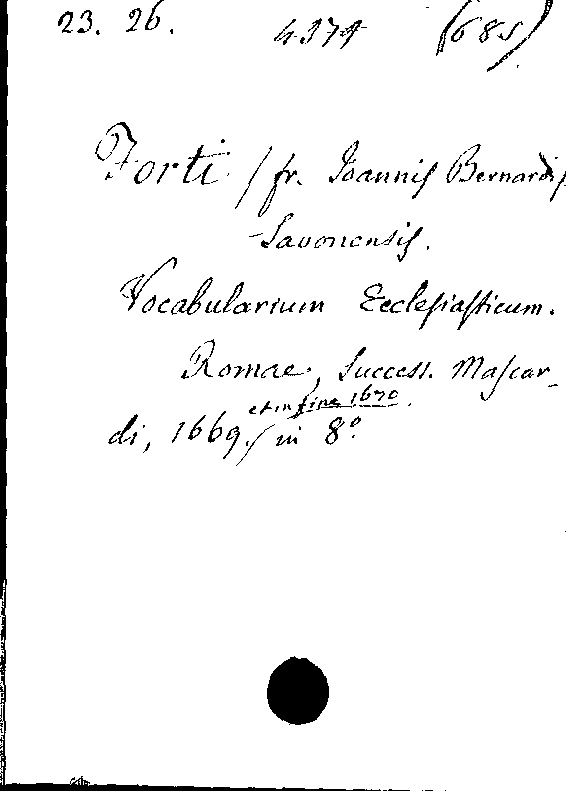 23. 26. 4374 (685)
Forti / fr. Joannis Bernardi,
Savonensis.
Vocabularium Ecclesiasticum.
Romae, Success. Mascar-
et in fine 1670.
di, 1669. / in 8°.